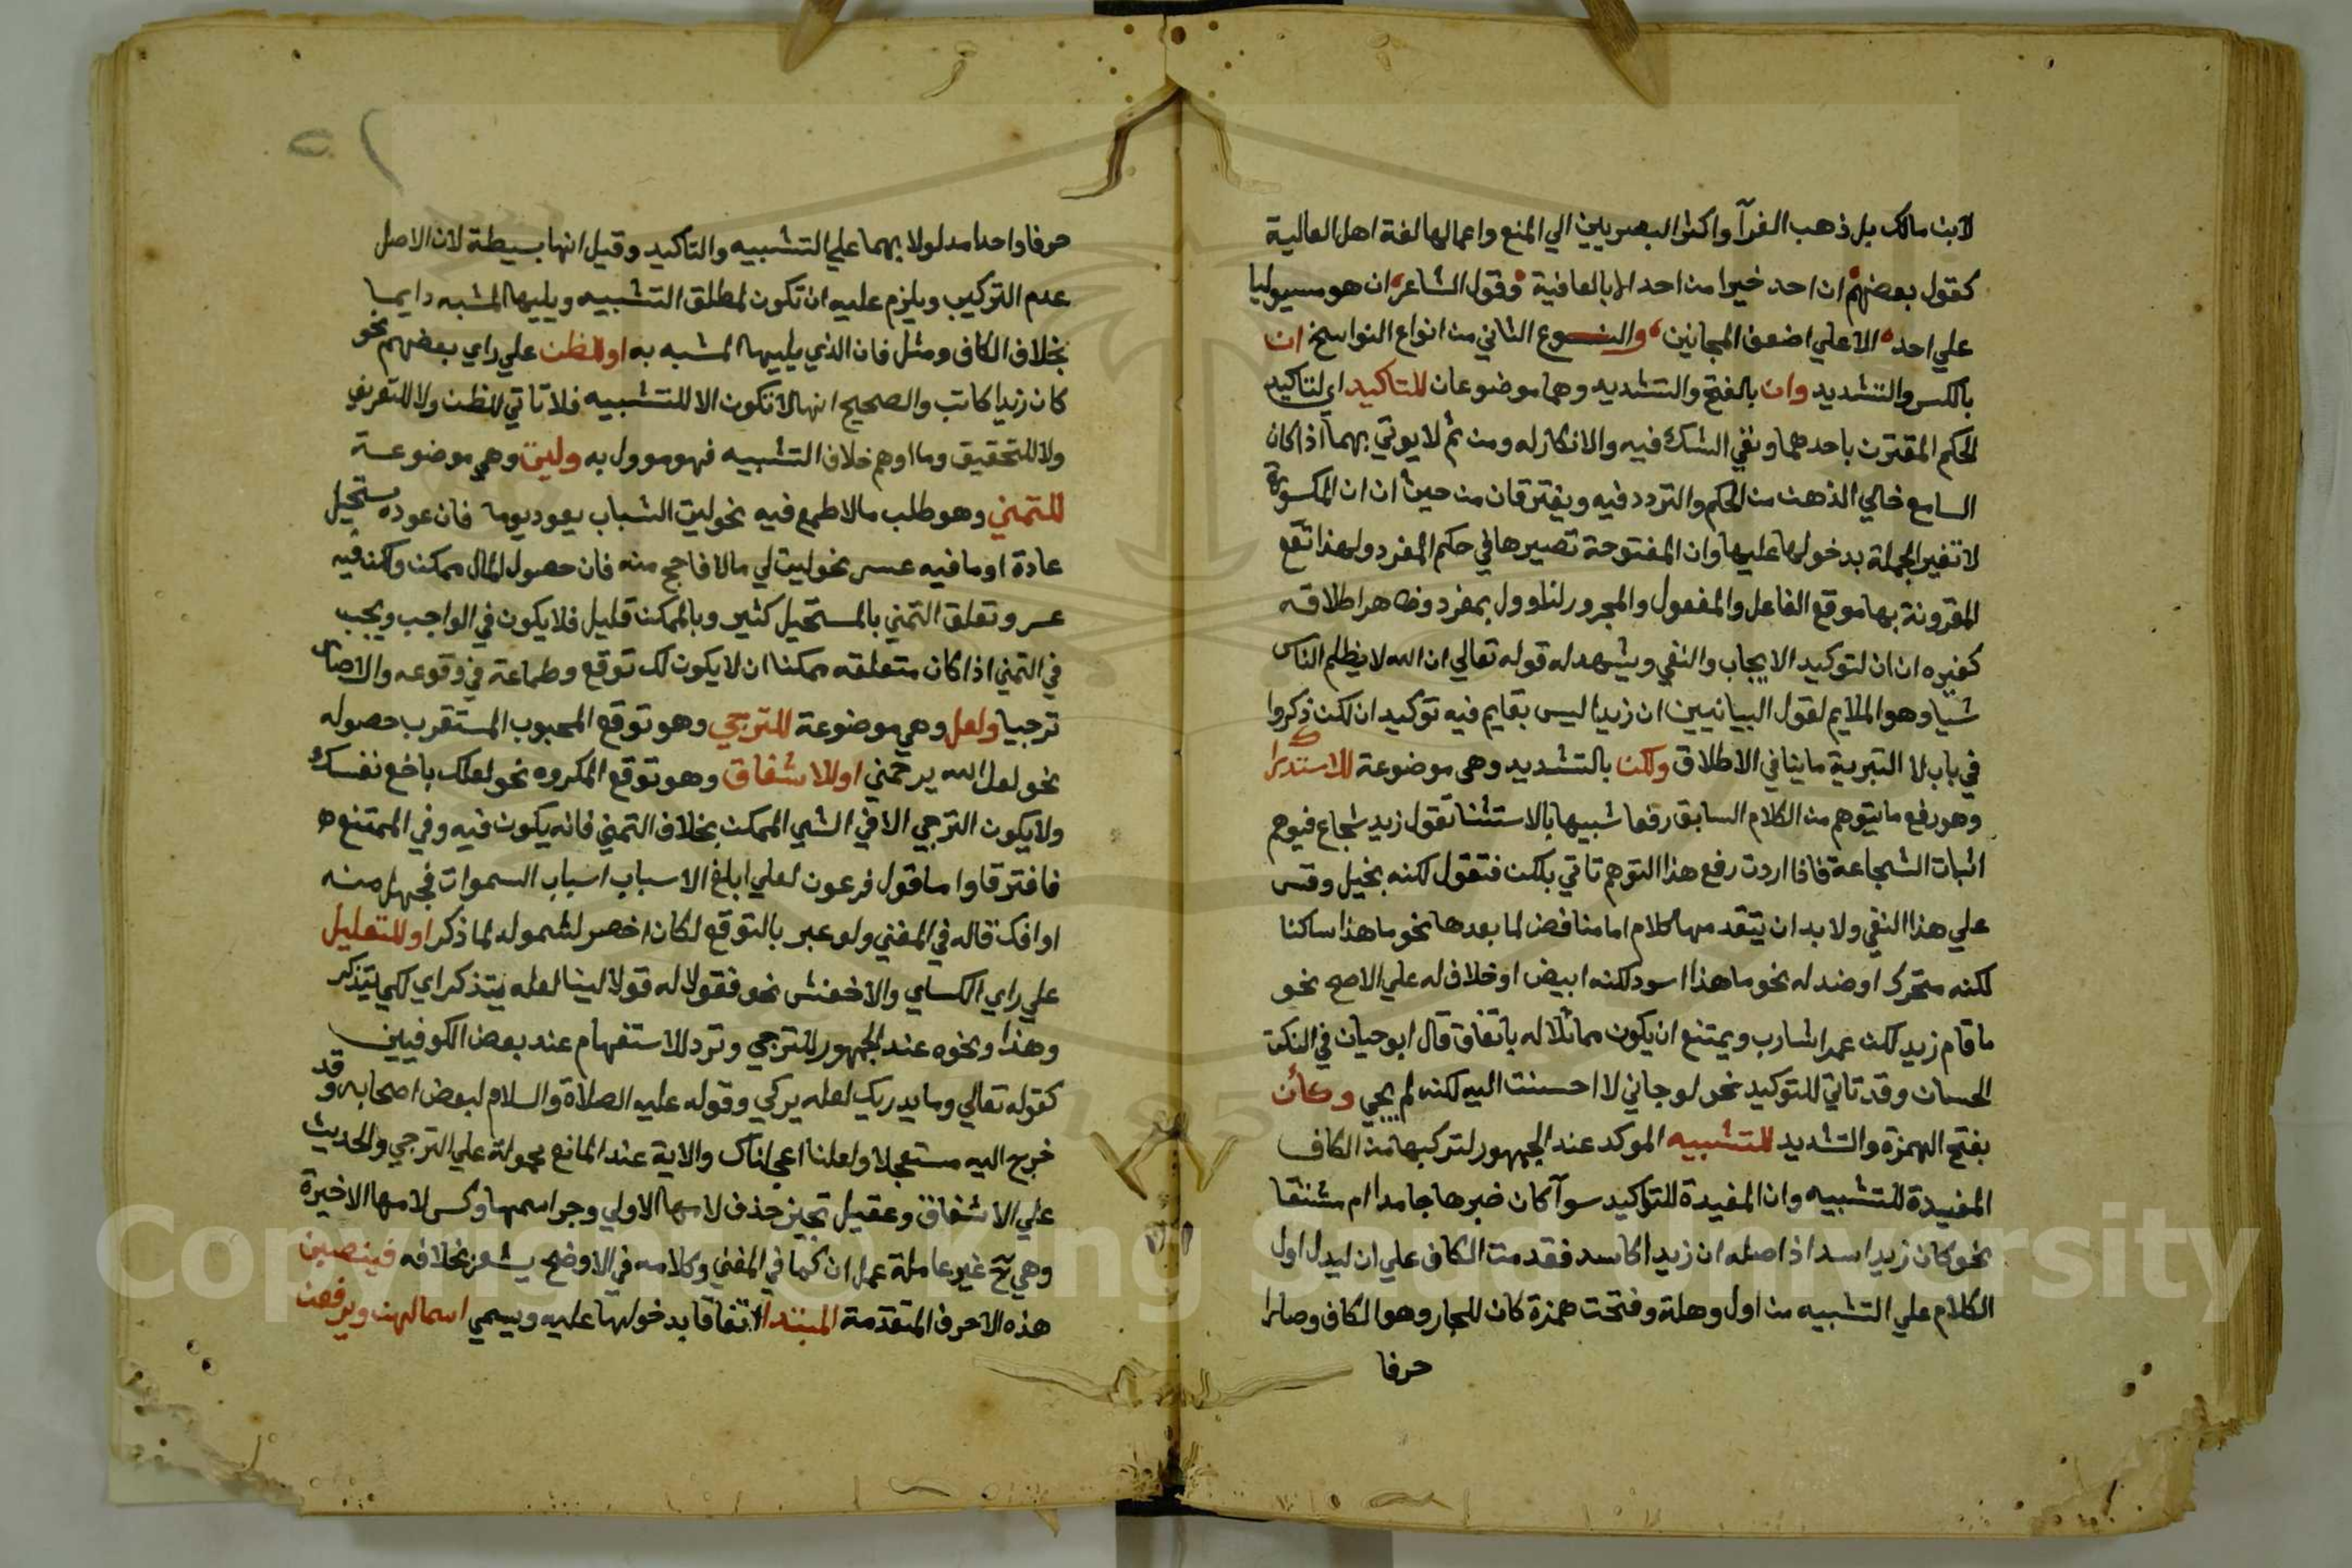 لابن مالك بل ذهب الفرآ واكثر البصريين الي المنع واعمالها لغة اهل العالية
كقول بعضهم ان احد خيرا من احد الا بالعافية وقول الشاعر ان هو مسوليا
علي احد الا علي اضعف المجانين والنوع الثاني من انواع النواسخ ان
بالكسر والتشديد وان بالفتح والتشديد وهما موضوعان للتاكيد اي لتاكيد
الحكم المقترن باحدهما ونفي الشك فيه والانكار له ومن ثم لا يوتي بهما اذا كان
السامع خالي الذهن من الحكم والتردد فيه ويفترقان من حيث ان ان المكسورة
لا تغير الجملة بدخولها عليها وان المفتوحة تصيرها في حكم المفرد ولهذا تقع
المقرونة بها موقع الفاعل والمفعول والمجرور لتاوول بمفرد وظاهر اطلاقه
كغيره ان ان لتوكيد الايجاب والنفي ويشهد له قوله تعالي ان الله لا يظلم الناس
شيا وهو الملايم لقول البيانيين ان زيدا ليس بقايم فيه توكيدان لكن ذكروا
في باب لا التبرية ما ينافي الاطلاق ولكن بالتشديد وهي موضوعة للاستدراك
وهو رفع ما يتوهم من الكلام السابق رفعا شبيها بالاستثنا تقول زيد شجاع فيوهم
اثبات الشجاعة فاذا اردت رفع هذا التوهم تاتي بلكن فتقول لكنه بخيل وقس
علي هذا النفي ولا بد ان يتقدمها كلام اما مناقض لما بعدها نحو ما هذا ساكنا
لكنه متحرك او ضد له نحو ما هذا اسود لكنه ابيض او خلاف له علي الاصح نحو
ما قام زيد لكن عمرا شارب ويمتنع ان يكون مماثلا له باتفاق قال ابو حيان في النكت
الحسان وقد تاتي للتوكيد نحو لو جاني لا احسنت اليه لكنه لم يجي وكأن
بفتح الهمزة والتشديد للتشبيه الموكد عند الجمهور لتركبها من الكاف
المفيدة للتشبيه وان المفيدة للتوكيد سوآ كان خبرها جامدا ام مشتقا
نحو كان زيدا اسد اذ اصله ان زيدا كاسد فقدمت الكاف علي ان ليدل اول
الكلام علي التشبيه من اول وهلة وفتحت همزة كان للجار وهو الكاف وصارا
حرفا
حرفا واحدا مدلولا بهما علي التشبيه والتاكيد وقيل انها بسيطة لان الاصل
عدم التركيب ويلزم عليه ان تكون لمطلق التشبيه ويليها المشبه دايما
بخلاف الكاف ومثل فان الذي يليهما المشبه به او للظن علي راي بعضهم نحو
كان زيدا كاتب والصحيح انها لا تكون الا للتشبيه فلا تاتي للظن ولا للتقريب
ولا للتحقيق وما اوهم خلاف التشبيه فهو موول به وليت وهي موضوعة
للتمني وهو طلب ما لا طمع فيه نحو ليت الشباب يعود يوما فان عوده مستحيل
عادة او ما فيه عسر نحو ليت لي مالا فاحج منه فان حصول المال ممكن ولكن فيه
عسر وتعلق التمني بالمستحيل كثير وبالممكن قليل فلا يكون في الواجب ويجب
في التمني اذا كان متعلقه ممكنا ان لا يكون لك توقع وطماعة في وقوعه والا صار
ترجيا ولعل وهي موضوعة للترجي وهو توقع المحبوب المستقرب حصوله
نحو لعل الله يرحمني او للاشفاق وهو توقع المكروه نحو لعلك باخع نفسك
ولا يكون الترجي الا في الشي الممكن بخلاف التمني فانه يكون فيه وفي الممتنع
فافترقا واما قول فرعون لعلي ابلغ الاسباب اسباب السموات فجهل منه
او افك قاله في المغني ولو عبر بالتوقع لكان اخصر لشموله لما ذكر او للتعليل
علي راي الكساي والاخفش نحو فقولا له قولا لينا لعله يتذكر اي لكي يتذكر
وهذا ونحوه عند الجمهور للترجي وترد للاستفهام عند بعض الكوفيين
كقوله تعالي وما يدريك لعله يزكي وقوله عليه الصلاة والسلام لبعض اصحابه وقد
خرج اليه مستعجلا ولعلنا اعجلناك والاية عند المانع محمولة علي الترجي والحديث
علي الاشفاق وعقيل تجيز حذف لامها الاولي وجر اسمها وكسر لامها الاخيرة
وهي ح غير عاملة عمل ان كما في المغني وكلامه في الاوضح يشعر بخلافه فينصبن
هذه الاحرف المتقدمة المبتدا اتفاقا بدخولها عليه ويسمي اسما لهن ويرفعن